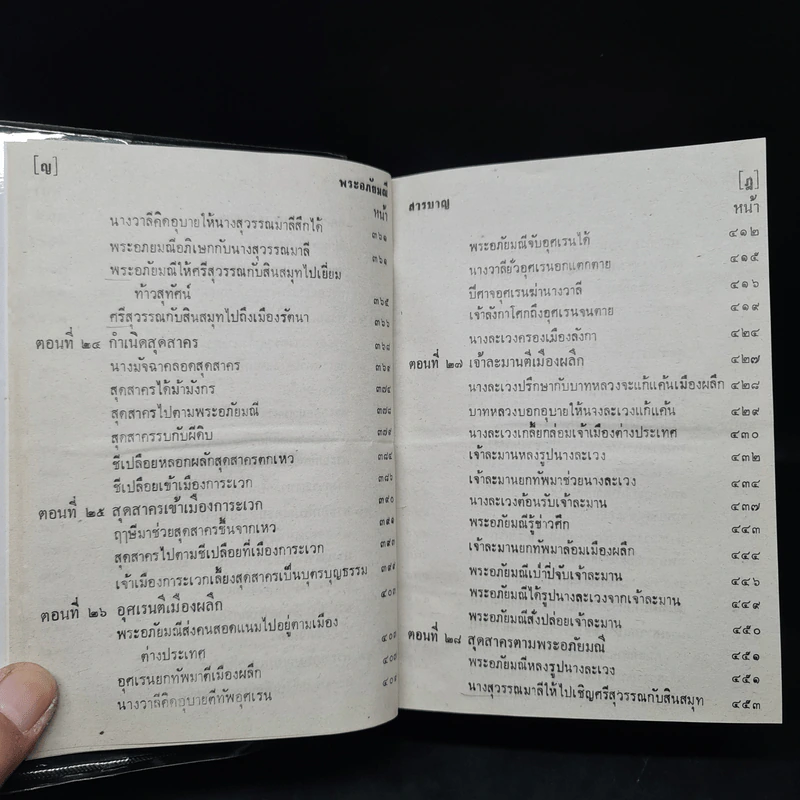 [ญ]
พระอภัยมณี
หน้า
นางวาลีคิดอุบายให้นางสุวรรณมาลีสึกได้ ๓๖๑
พระอภยมณีอภิเษกกับนางสุวรรณมาลี ๓๖๑
พระอภัยมณีให้ศรีสุวรรณกับสินสมุทไปเยี่ยม
ท้าวสุทัศน์ ๓๖๕
ศรีสุวรรณกับสินสมุทไปถึงเมืองรัตนา ๓๖๖
ตอนที่ ๒๔ กำเนิดสุดสาคร ๓๖๘
นางมัจฉาคลอดสุดสาคร ๓๖๙
สุดสาครได้ม้ามังกร ๓๗๔
สุดสาครไปตามพระอภัยมณี ๓๗๘
สุดสาครรบกับผีดิบ ๓๗๙
ชีเปลือยหลอกผลักสุดสาครตกเหว ๓๘๔
ชีเปลือยเข้าเมืองการะเวก ๓๘๖
ตอนที่ ๒๕ สุดสาครเข้าเมืองการะเวก ๓๙๐
ฤๅษีมาช่วยสุดสาครขึ้นจากเหว ๓๙๑
สุดสาครไปตามชีเปลือยที่เมืองการะเวก ๓๙๓
เจ้าเมืองการะเวกเลี้ยงสุดสาครเป็นบุตรบุญธรรม ๓๙๙
ตอนที่ ๒๖ อุศเรนตีเมืองผลึก ๔๐๓
พระอภัยมณีส่งคนสอดแนมไปอยู่ตามเมือง
ต่างประเทศ ๔๐๓
อุศเรนยกทัพมาตีเมืองผลึก ๔๐๗
นางวาลีคิดอุบายตีทัพอุศเรน ๔๐๙
สารบาญ
[ฎ]
หน้า
พระอภัยมณีจับอุศเรนได้ ๔๑๒
นางวาลียั่วอุศเรนอกแตกตาย ๔๑๕
ปีศาจอุศเรนฆ่านางวาลี ๔๑๖
เจ้าลังกาโศกถึงอุศเรนจนตาย ๔๑๙
นางละเวงครองเมืองลังกา ๔๒๔
ตอนที่ ๒๗ เจ้าละมานตีเมืองผลึก ๔๒๗
นางละเวงปรึกษากับบาทหลวงจะแก้แค้นเมืองผลึก ๔๒๘
บาทหลวงบอกอุบายให้นางละเวงแก้แค้น ๔๒๙
นางละเวงเกลี้ยกล่อมเจ้าเมืองต่างประเทศ ๔๓๐
เจ้าละมานหลงรูปนางละเวง ๔๓๒
เจ้าละมานยกทัพมาช่วยนางละเวง ๔๓๔
นางละเวงต้อนรับเจ้าละมาน ๔๓๗
พระอภัยมณีรู้ข่าวศึก ๔๔๓
เจ้าละมานยกทัพมาล้อมเมืองผลึก ๔๔๔
พระอภัยมณีเป่าปี่จับเจ้าละมาน ๔๔๖
พระอภัยมณีได้รูปนางละเวงจากเจ้าละมาน ๔๔๙
พระอภัยมณีสั่งปล่อยเจ้าละมาน ๔๕๐
ตอนที่ ๒๘ สุดสาครตามพระอภัยมณี ๔๕๑
พระอภัยมณีหลงรูปนางละเวง ๔๕๑
นางสุวรรณมาลีให้ไปเชิญศรีสุวรรณกับสินสมุท ๔๕๓